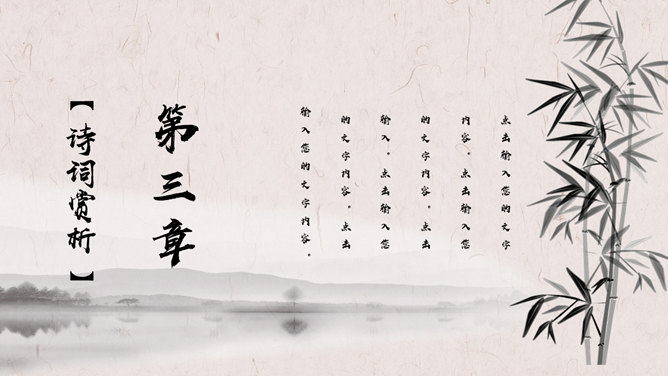 点击输入您的文字
内容。点击输入您
的文字内容。点击
输入。点击输入您
的文字内容。点击
输入您的文字内容。
第三章
【诗词赏析】